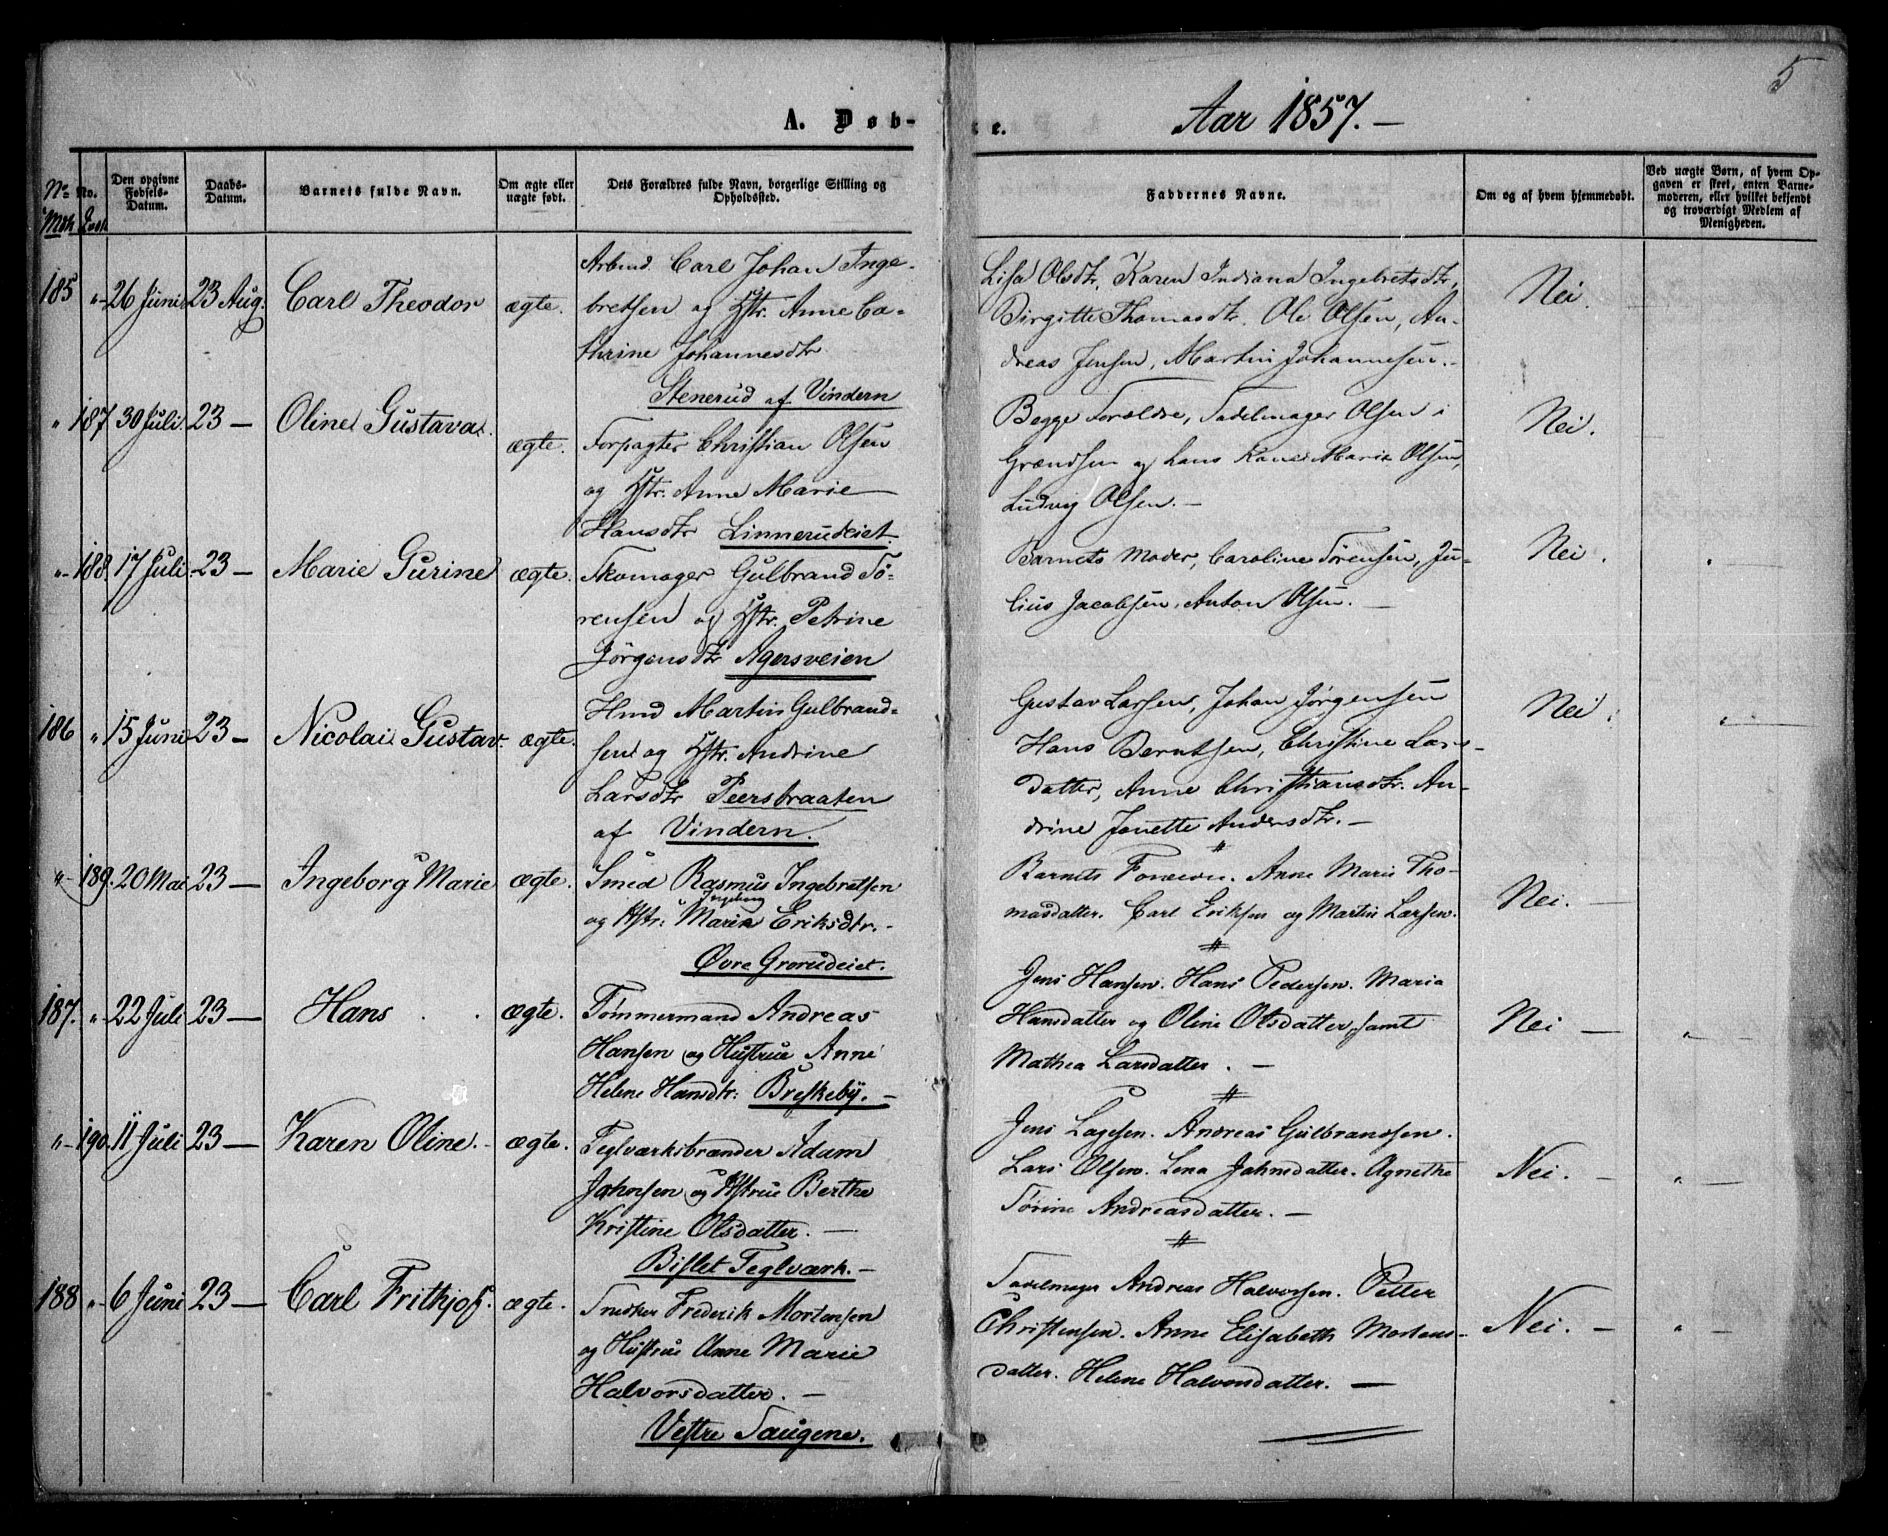 5
A. Døb-
te.
Aar 1857.-
No No.
Mdk. Qvdk.
Den opgivne Fødsels-Datum.
Daabs-Datum.
Barnets fulde Navn.
Om ægte eller uægte født.
Dets Forældres fulde Navn, borgerlige Stilling og Opholdssted.
Faddernes Navne.
Om og af hvem hjemmedøbt.
Ved uægte Børn, af hvem Opgaven er skeet, enten Barnemoderen, eller hvilket bekjendt og troværdigt Medlem af Menigheden.
185 " 26 Juni 23 Aug. Carl Theodor ægte.
Arbmd. Carl Johan Inge-
bretsen og Hstr. Anne Ca-
thrine Johannesdtr.
Stenerud af Vindern
Lisa Olsdtr, Karen Indiana Ingebretsdtr,
Birgitte Thomasdtr. Ole Olsen, An-
dreas Jensen, Martin Johannesen.-
Nei.
" 187 30 Juli 23 — Oline Gustava. ægte.
Forpagter Christian Olsen
og Hstr. Anne Marie
Hansdtr Linnerudeiet
Begge Forældre, Sadelmager Olsen i
Grændsen og hans Kone Marie Olsen,
Ludvig Olsen. -
Nei.
" 188. 17 Juli 23 — Marie Gurine ægte.
Skomager Gulbrand Sö-
rensen og Hstr. Petrine
Jörgensdtr Agersveien
Barnets Moder, Caroline Sörensen, Ju-
lius Jacobsen, Anton Olsen. —
Nei.
"
186 " 15 Juni 23 — Nicolai Gustav. ægte.
Hmd Martin Gulbrand-
sen og Hstr. Andrine
Larsdtr Peersbraaten
af Vindern.
Gustav Larsen, Johan Jørgensen
Hans Berntsen, Christine Lars-
datter, Anne Christiansdtr. An-
drine Jonette Andersdtr. -
Nei.
"
" 189. 20 Mai 23 — Ingeborg Marie ægte.
Smed Rasmus Ingebretsen
Ingeborg
og Hstr: Maria Eriksdtr. -
Øvre Grorudeiet.
Barnets Forældre. Anne Marie Tho-
masdatter. Carl Eriksen og Martin Larsen.
Nei. —
187. " 22 Juli 23 — Hans ægte.
Tømmermand Andreas
Hansen og Hustrue Anne
Helene Hansdtr: Breskeby. -
Jens Hansen. Hans Pedersen. Maria
Hansdatter og Oline Olsdatter samt
Mathea Larsdatter. -
Nei —
"
" 190. 11 Juli 23 — Karen Oline. ægte.
Teglværksbrænder Adam
Johnsen og Hstrue Berthe
Kristine Olsdatter. —
Bislet Teglværk. -
Jens Lagesen. Andreas Gulbrandsen.
Lars Olsen. Lena Johnsdatter. Agnethe
Sørine Andreasdatter. -
Nei. -
"
188 " 6 Juni 23 — Carl Frithjof. ægte.
Snedker Frederik Mortensen
og Hustrue Anne Marie
Halvorsdatter. —
Vestre Saugene.
Sadelmager Andreas Halvorsen. Petter
Christensen. Anne Elisabeth Mortens-
datter. Helene Halvorsdatter. —
Nei. -
"